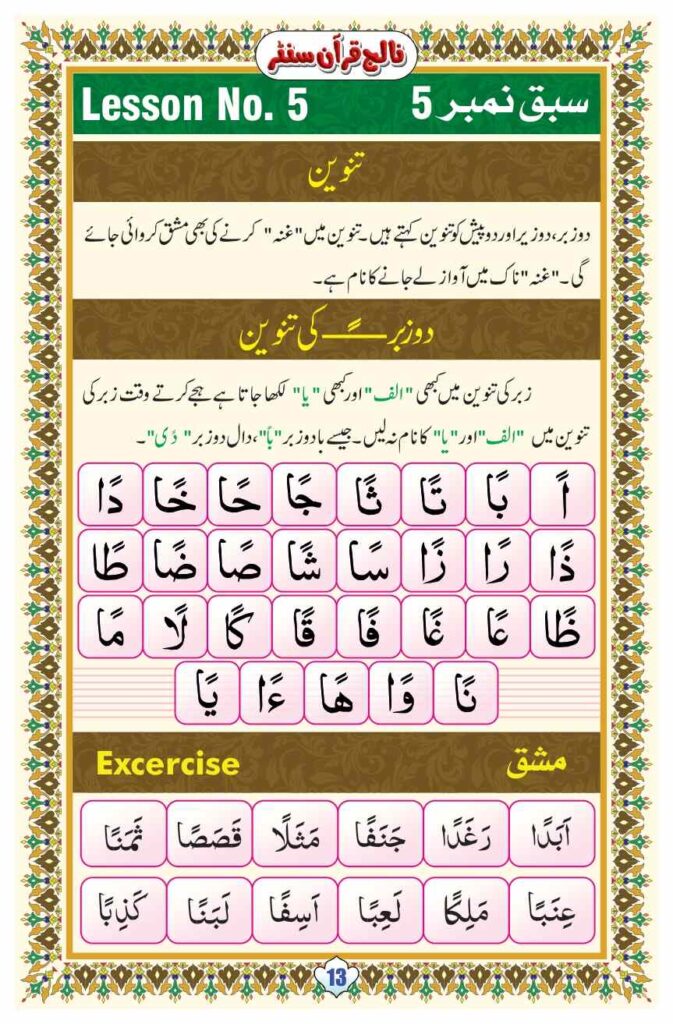 نالج قرآن سنٹر
Lesson No. 5 سبق نمبر 5
تنوین
دو زبر، دو زیر اور دو پیش کو تنوین کہتے ہیں۔ تنوین میں "غنہ" کرنے کی بھی مشق کروائی جائے
گی۔ "غنہ" ناک میں آواز لے جانے کا نام ہے۔
دو زبر ـً کی تنوین
زبر کی تنوین میں کبھی "الف" اور کبھی "یا" لکھا جاتا ہے ہجے کرتے وقت زبر کی
تنوین میں "الف" اور "یا" کا نام نہ لیں۔ جیسے با دو زبر "باً"، دال دو زبر "دًی"۔
اً بًا تًا ثًا جًا حًا خًا دًا
ذًا رًا زًا سًا شًا صًا ضًا طًا
ظًا عًا غًا فًا قًا كًا لًا مًا
نًا وًا هًا ءًا يًا
Excercise مشق
اَبَدًا رَغَدًا جَنَفًا مَثَلًا قَصَصًا ثَمَنًا
عِنَبًا مَلِكًا لَعِبًا اَسِفًا لَبَنًا كَذِبًا
13